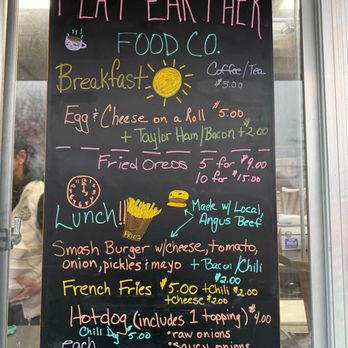 FLAT EARTHER
FOOD CO.
Breakfast
Coffee/Tea
$5.00
Egg & Cheese on a Roll $5.00
+ Taylor Ham/Bacon +$2.00
Fried Oreos 5 for $9.00
10 for $15.00
Lunch!!
FRIES
Made w/ Local,
Angus Beef
Smash Burger w/cheese, tomato,
onion, pickles & mayo + Bacon/Chili
$2.00
French Fries $5.00 +chili $2.00
+cheese $2.00
Hotdog (includes 1 topping) $4.00
Chili Dog $5.00 *raw onions
each *saucy onions